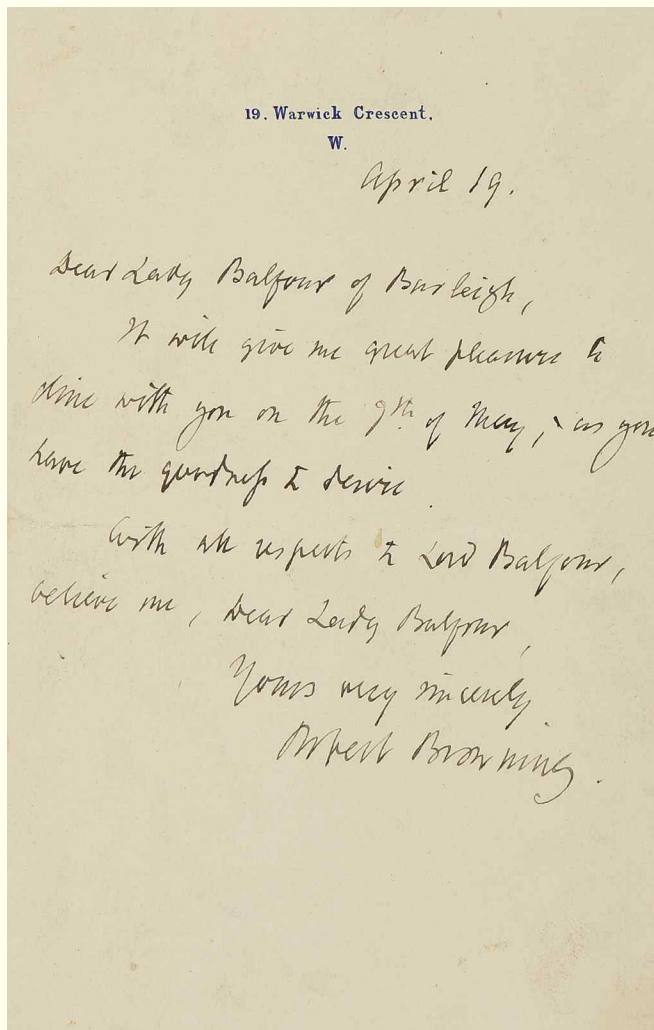 19. Warwick Crescent,
W.
April 19.
Dear Lady Balfour of Burleigh,
It will give me great pleasure to
dine with you on the 9th. of May, as you
have the goodness to desire.
With all respects to Lord Balfour,
believe me, Dear Lady Balfour,
Yours very sincerely
Robert Browning.